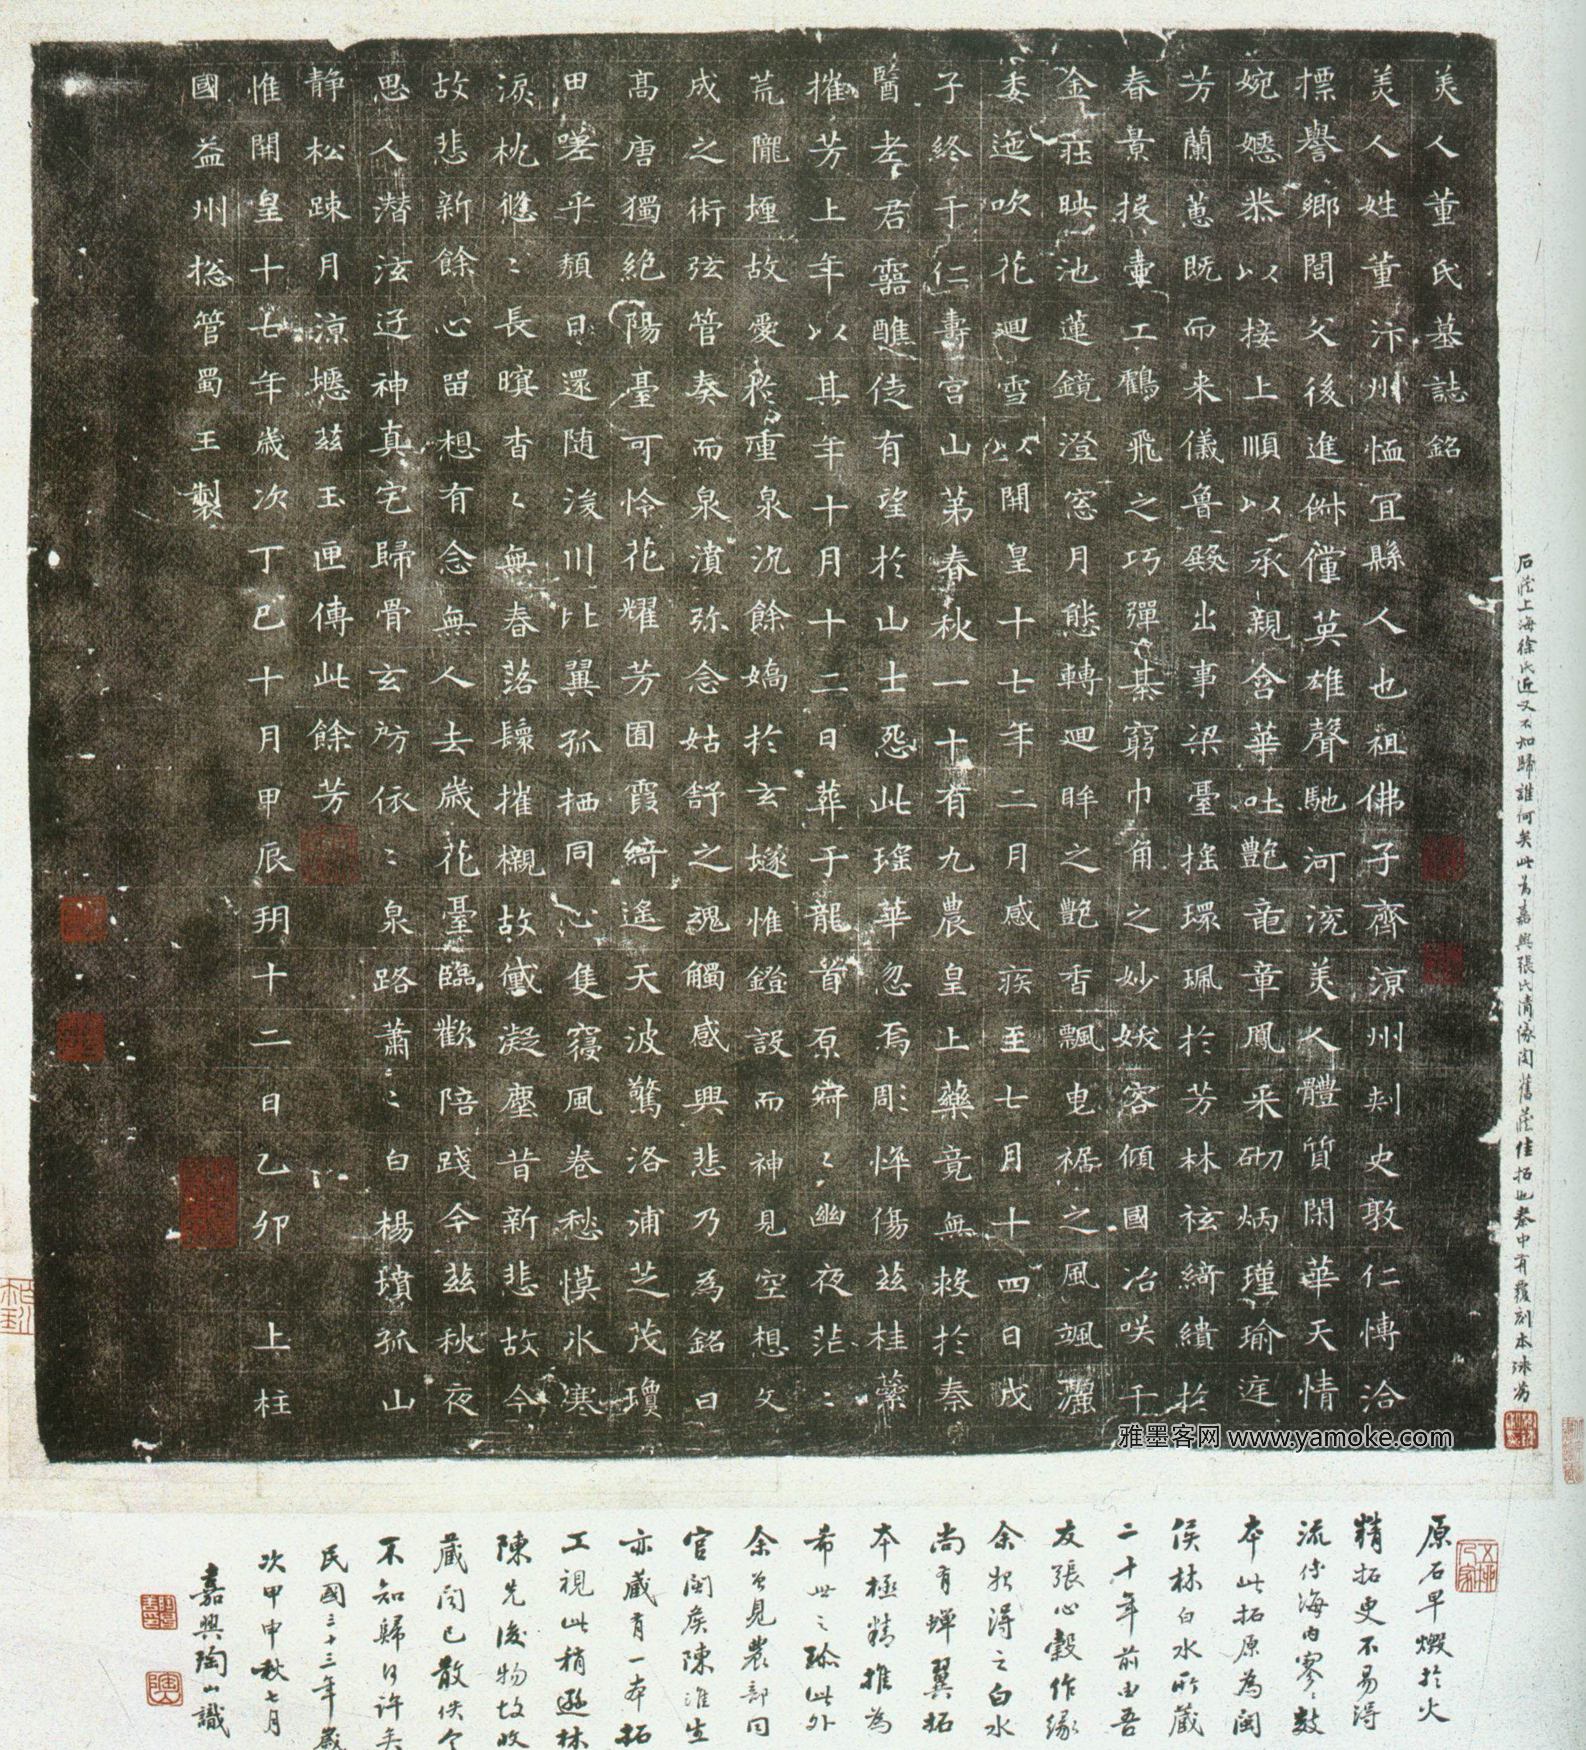 美人董氏墓誌銘
美人姓董汴州恤冝縣人也祖佛子齊涼州刾史敦仁慱洽
摽譽鄉閭父後進俶儻英雄聲馳河渷美人體質閑華天情
婉嬺恭以接上順以承親含華吐艷竜章鳳采砌炳瑾瑜庭
芳蘭蕙既而来儀魯殿出事梁臺搖環珮於芳林袨綺繢於
春景投壷工鶴飛之巧彈棊窮巾角之妙妖容傾國冶咲千
金莊映池蓮鏡澄窓月態轉迴眸之艷香飄曳裾之風颯灑
委迤吹花迴雪以開皇十七年二月感疾至七月十四日戊
子終于仁壽宮山第春秋一十有九農皇上藥竟無救於秦
醫老君靈醮徒有望於山士怨此瑤華忽焉彫悴傷兹桂蘂
摧芳上年以其年十月十二日葬于龍首原寂〻幽夜茫〻
荒隴埋故愛於重泉沉餘嬌於玄墬惟鐙設而神見空想文
成之術弦管奏而泉濆弥念姑舒之魂觸感興悲乃為銘曰
髙唐獨絶陽臺可怜花耀芳囿霞綺遙天波驚洛浦芝茂瓊
田嗟乎頹日還随湲川比翼孤栖同心隻寢風卷愁慔氷寒
淚枕悠〻長暝杳〻無春落鬟摧櫬故黛凝塵昔新悲故今
故悲新餘心留想有念無人去歲花臺臨歡陪踐今兹秋夜
思人潜泫迂神真宅歸骨玄房依〻泉路蕭〻白楊墳孤山
静松踈月涼瘞兹玉匣傳此餘芳
惟開皇十七年歲次丁巳十月甲辰朔十二日乙卯上柱
國益州捴管蜀王製
石藏上海徐氏近又不知歸誰何矣此為嘉興張氏清儀閣舊藏佳拓也秦中有覆刻本
雅墨客网 www.yamoke.com
原石早燬於火
精拓更不易得
流傳海内寥〻數
本此拓原為閩
侯林白水所藏
二十年前由吾
友張心穀作緣
余始得之白水
尚有蟬翼拓
本極精推為
希世之珍此外
余曾見農部同
官閩矦陳淮生
亦藏有一本拓
工視此稍遜林
陳先後物故收
藏聞已散佚今
不知歸何許矣
民國三十三年歲
次甲申秋七月
嘉興陶識